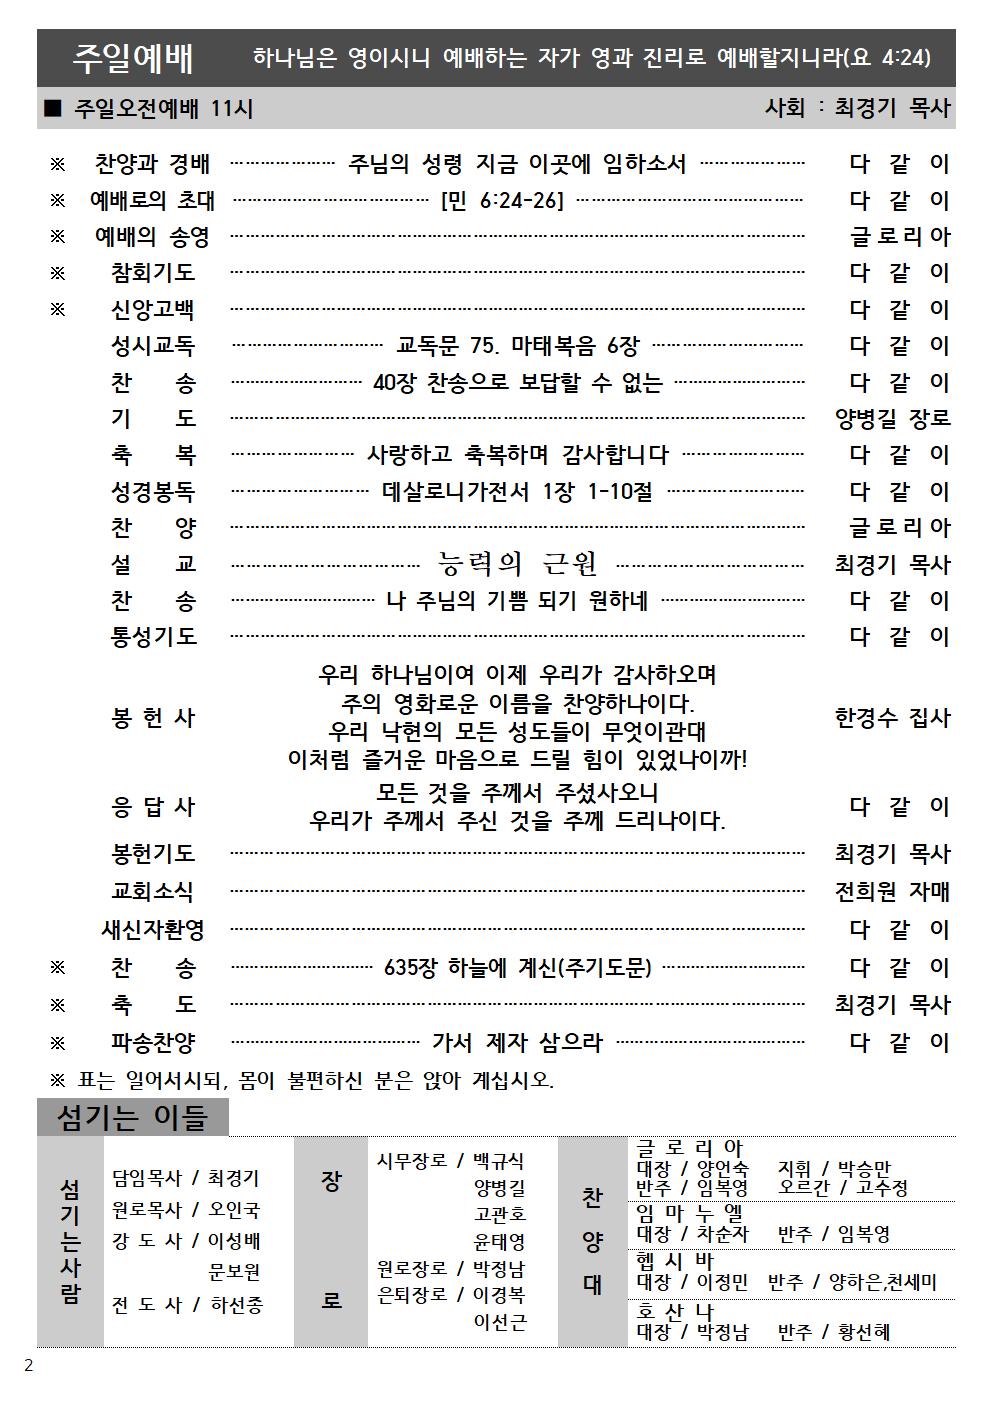 주일예배 하나님은 영이시니 예배하는 자가 영과 진리로 예배할지니라(요 4:24)
■ 주일오전예배 11시 사회 : 최경기 목사
※ 찬양과 경배 ………………… 주님의 성령 지금 이곳에 임하소서 ………………… 다 같 이
※ 예배로의 초대 ………………………………… [민 6:24-26] ……………………………………… 다 같 이
※ 예배의 송영 …………………………………………………………………………………………………… 글로리아
※ 참회기도 …………………………………………………………………………………………………… 다 같 이
※ 신앙고백 …………………………………………………………………………………………………… 다 같 이
성시교독 ………………………… 교독문 75. 마태복음 6장 ………………………… 다 같 이
찬 송 ……………………… 40장 찬송으로 보답할 수 없는 ……………………… 다 같 이
기 도 …………………………………………………………………………………………………… 양병길 장로
축 복 …………………… 사랑하고 축복하며 감사합니다 …………………… 다 같 이
성경봉독 ……………………… 데살로니가전서 1장 1-10절 ……………………… 다 같 이
찬 양 …………………………………………………………………………………………………… 글로리아
설 교 ………………………………… 능력의 근원 ………………………………… 최경기 목사
찬 송 ………………………… 나 주님의 기쁨 되기 원하네 ………………………… 다 같 이
통성기도 …………………………………………………………………………………………………… 다 같 이
우리 하나님이여 이제 우리가 감사하오며
주의 영화로운 이름을 찬양하나이다.
봉 헌 사 한경수 집사
우리 낙현의 모든 성도들이 무엇이관대
이처럼 즐거운 마음으로 드릴 힘이 있었나이까!
모든 것을 주께서 주셨사오니
응 답 사 다 같 이
우리가 주께서 주신 것을 주께 드리나이다.
봉헌기도 …………………………………………………………………………………………………… 최경기 목사
교회소식 …………………………………………………………………………………………………… 전희원 자매
새신자환영 …………………………………………………………………………………………………… 다 같 이
※ 찬 송 ………………………… 635장 하늘에 계신(주기도문) ………………………… 다 같 이
※ 축 도 …………………………………………………………………………………………………… 최경기 목사
※ 파송찬양 ………………………………… 가서 제자 삼으라 ………………………………… 다 같 이
※ 표는 일어서시되, 몸이 불편하신 분은 앉아 계십시오.
섬기는 이들
섬기는사람
담임목사 / 최경기
원로목사 / 오인국
강 도 사 / 이성배
문보원
전 도 사 / 하선종
장로
시무장로 / 백규식
양병길
고관호
윤태영
원로장로 / 박정남
은퇴장로 / 이경복
이선근
찬양대
글 로 리 아
대장 / 양언숙 지휘 / 박승만
반주 / 임복영 오르간 / 고수정
임 마 누 엘
대장 / 차순자 반주 / 임복영
헵 시 바
대장 / 이정민 반주 / 양하은,천세미
호 산 나
대장 / 박정남 반주 / 황선혜
2